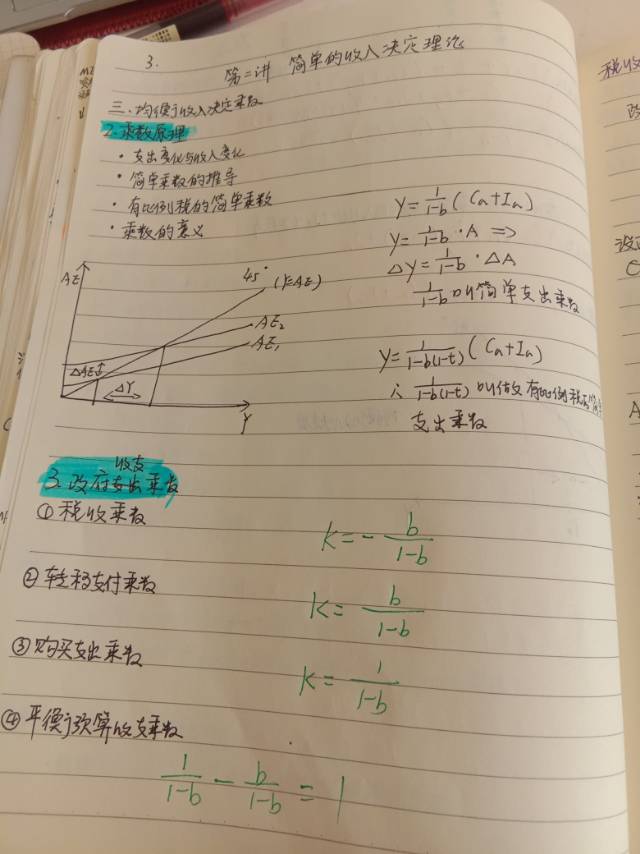 3.
第二讲 简单的收入决定理论
三.均衡收入决定乘数
2.乘数原理
·支出变化与收入变化
·简单乘数的推导
·有比例税的简单乘数
·乘数的意义
Y=1/(1-b)(Ca+Ia)
Y=1/(1-b)·A =>
ΔY=1/(1-b)·ΔA
1/(1-b)叫简单支出乘数
Y=1/(1-b(1-t))(Ca+Ia)
∴ 1/(1-b(1-t))叫做有比例税
支出乘数
AE
45°
(Y=AE)
AE2
AE1
ΔAE
ΔY
Y
收支
3.政府支出乘数
①税收乘数
K=-b/(1-b)
②转移支付乘数
K=b/(1-b)
③购买支出乘数
K=1/(1-b)
④平衡预算收支乘数
1/(1-b)-b/(1-b)=1
税收